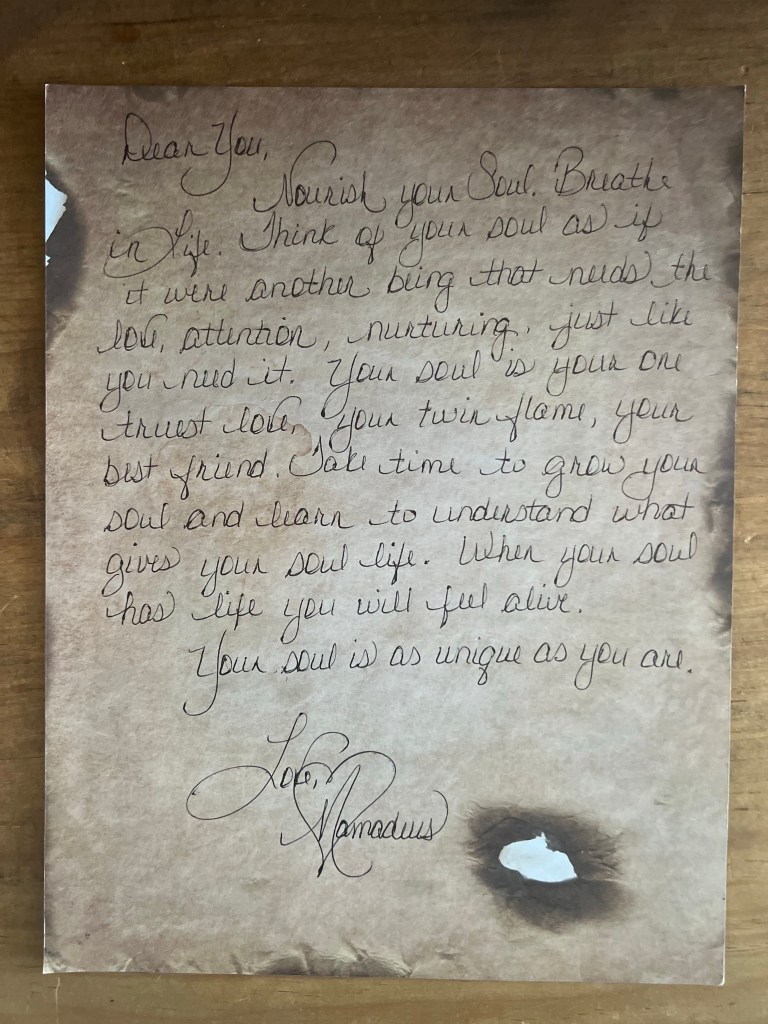 Dear You,
Nourish your Soul. Breathe
in Life. Think of your soul as if
it were another being that needs the
love, attention, nurturing, just like
you need it. Your soul is your one
truest love, your twin flame, your
best friend. Take time to grow your
soul and learn to understand what
gives your soul life. When your soul
has life you will feel alive.
Your soul is as unique as you are.
Love,
Mamadeus